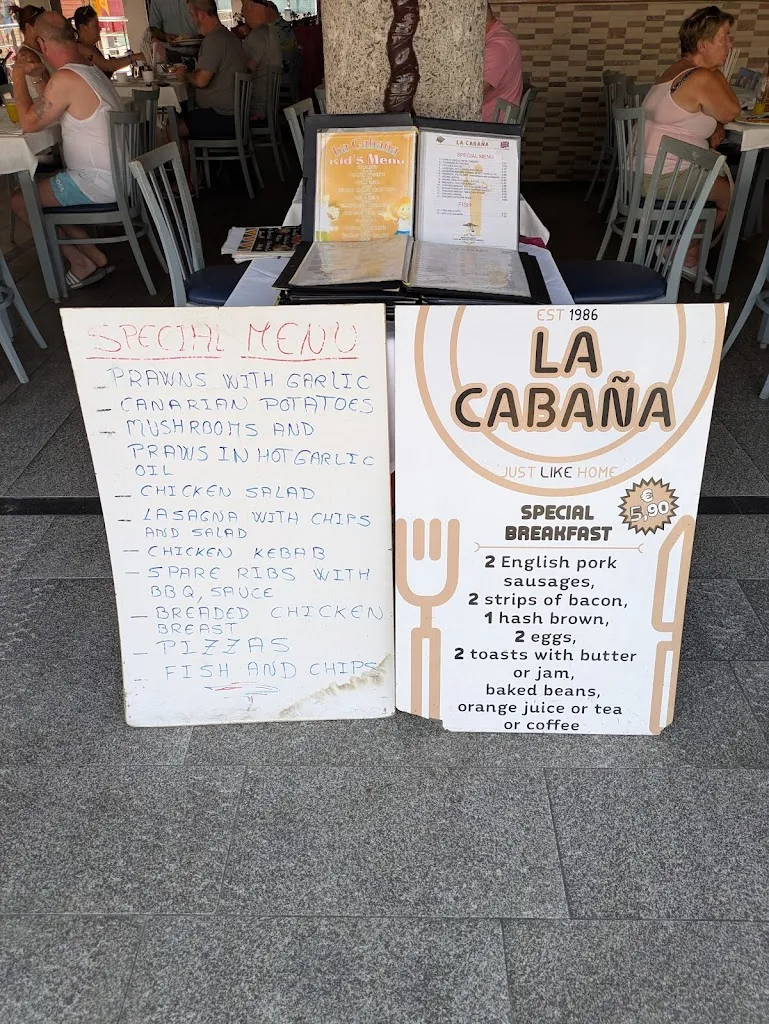 La Cabaña
Kid's Menu
LA CABAÑA
SPECIAL MENU
FISH
SPECIAL MENU
- PRAWNS WITH GARLIC
- CANARIAN POTATOES
- MUSHROOMS AND
PRAWS IN HOT GARLIC
OIL
- CHICKEN SALAD
- LASAGNA WITH CHIPS
AND SALAD
- CHICKEN KEBAB
- SPARE RIBS WITH
BBQ, SAUCE
- BREADED CHICKEN
BREAST
- PIZZAS
- FISH AND CHIPS
EST 1986
LA
CABAÑA
JUST LIKE HOME
€
5,90
SPECIAL
BREAKFAST
2 English pork
sausages,
2 strips of bacon,
1 hash brown,
2 eggs,
2 toasts with butter
or jam,
baked beans,
orange juice or tea
or coffee